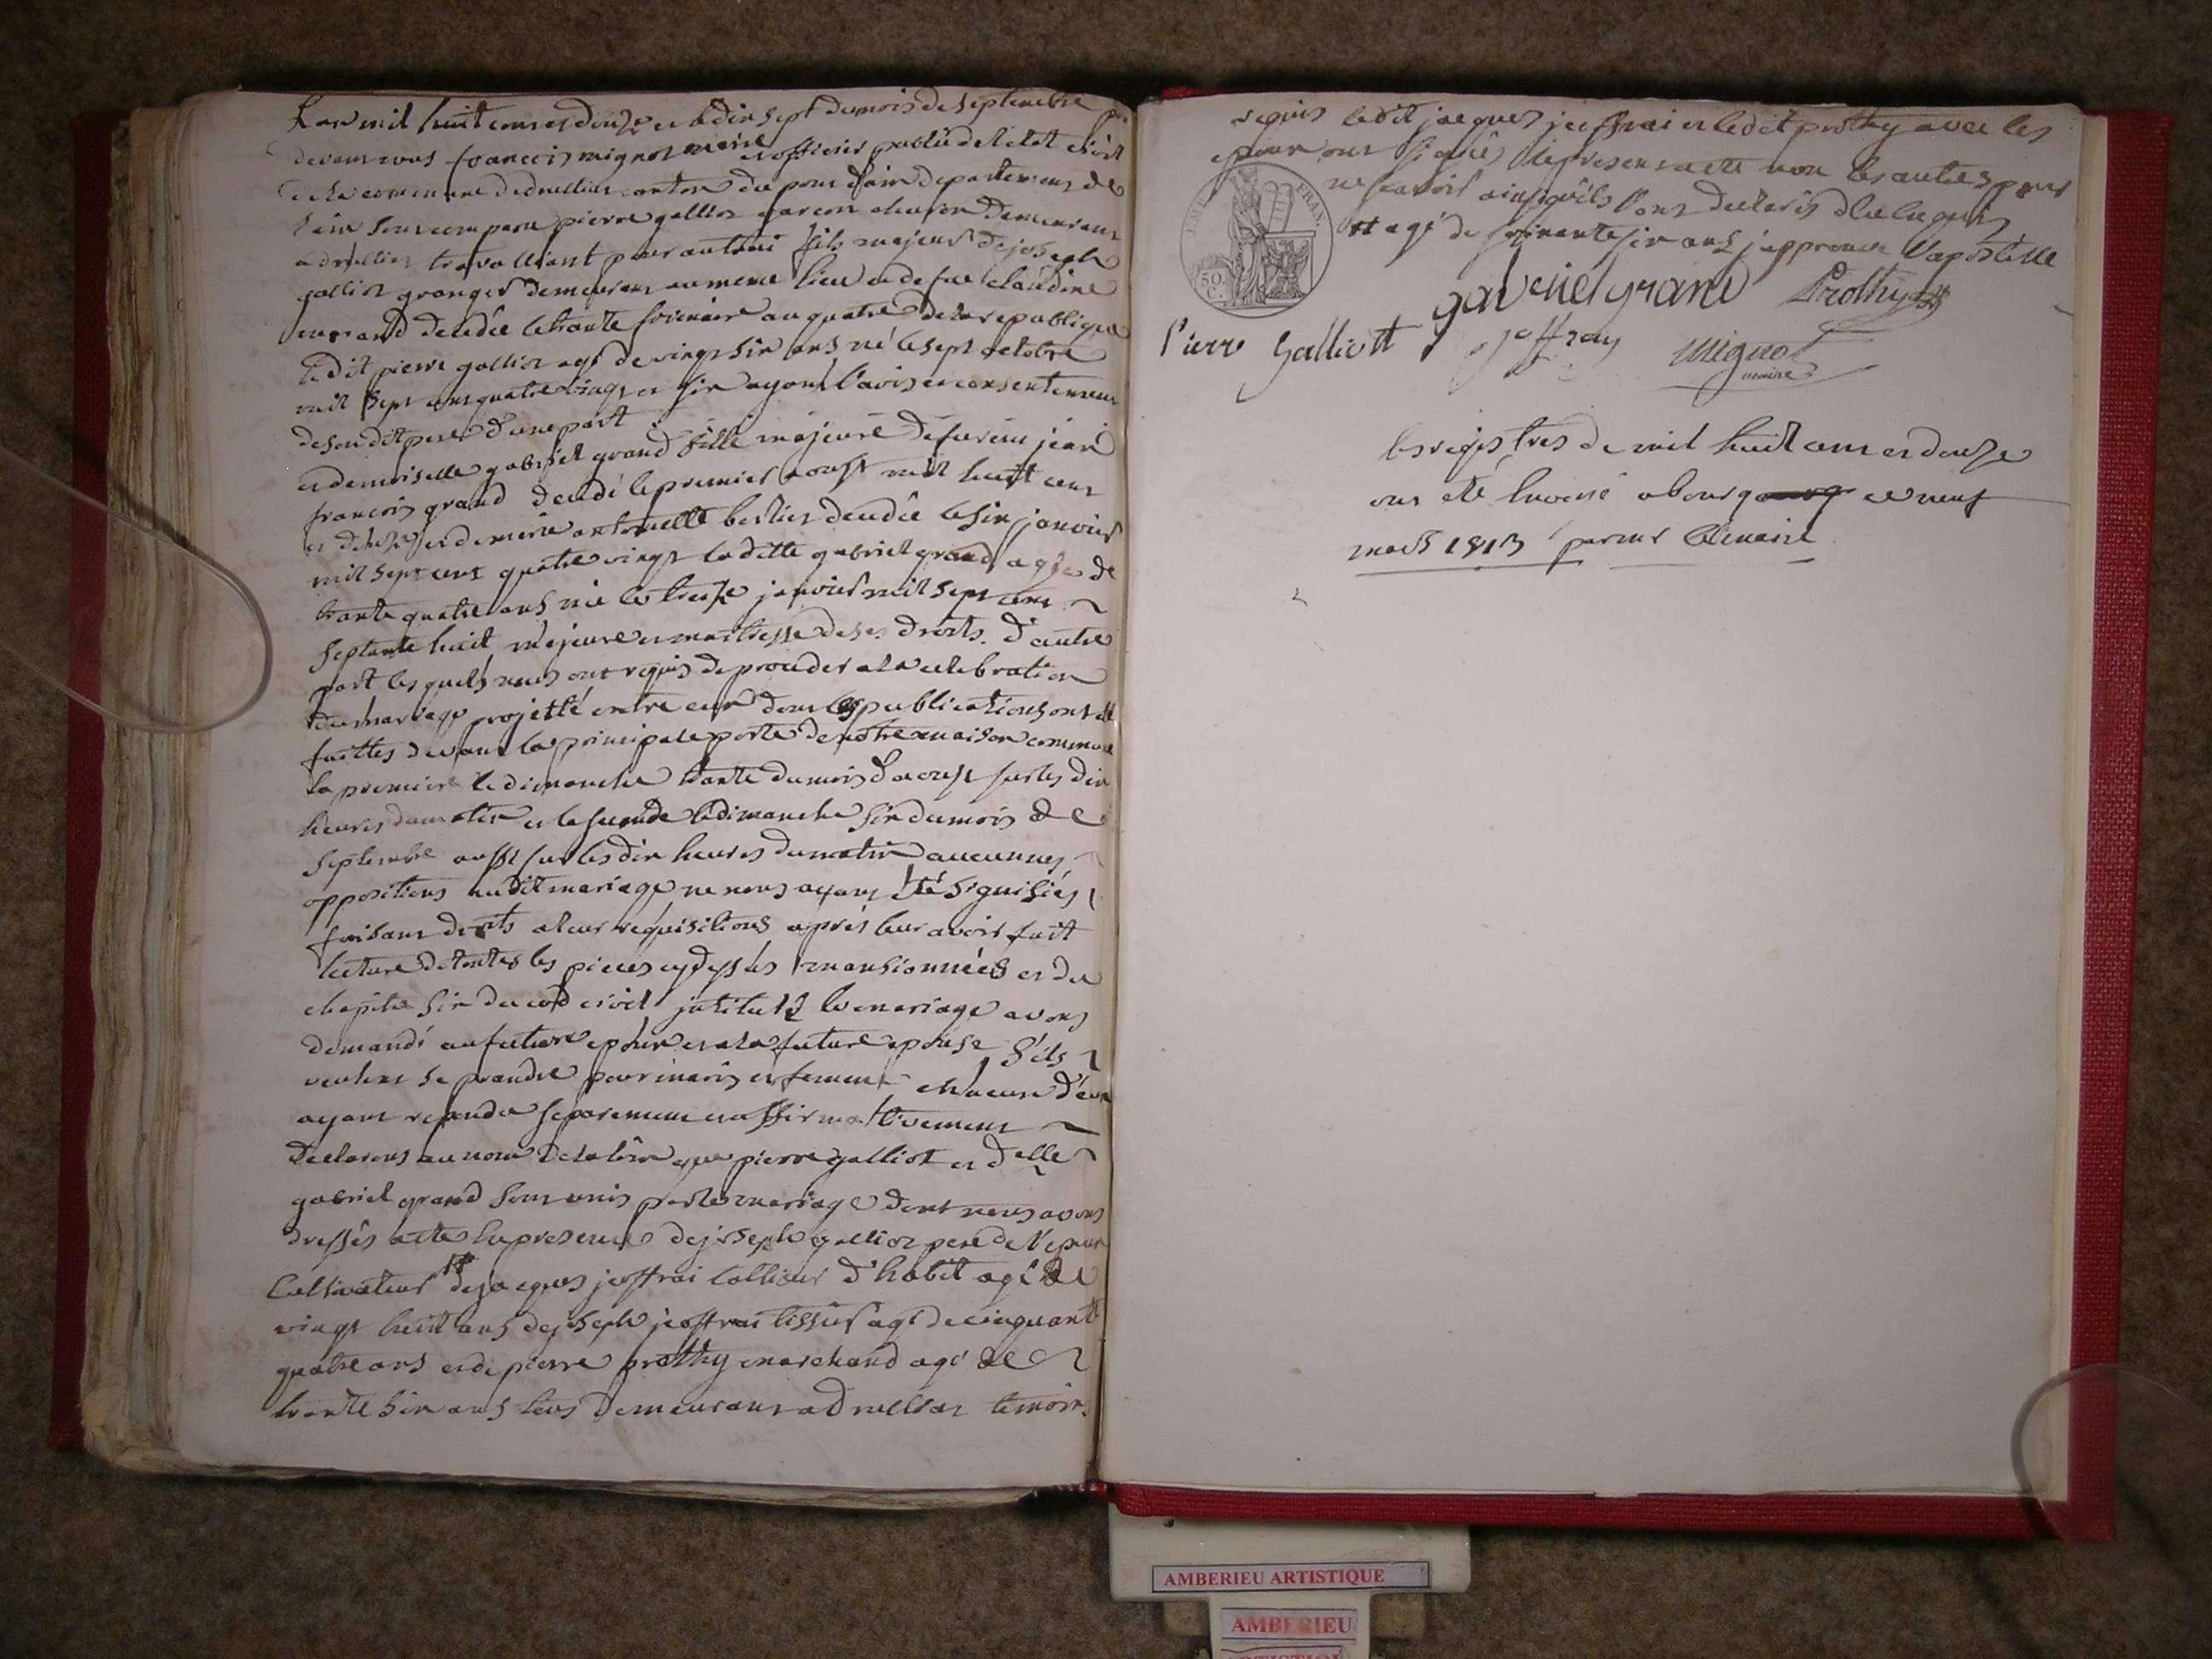 L'an mil huit cens et douze et le dix sept du mois de septembre par
devant nous francois mignot maire et officier public de l'etat civil
de la commune de druillat canton du pont d'ain departement de
l'ain sont comparu pierre galliot garcon demeurant
a druillat travalliant pour autrui fils majeur de joseph
galliot granger demeurant au meme lieu et de fue claudine
decedée le trante frimaire an quatre de la republique
le dit pierre galliot agé de vingt six ans né le sept octobre
mil sept cens quatre vingt et six ayant l'avis et consentement
de son dit pere d'une part
et demoiselle gabriel grand fille majeure de furent jean
francois grand decedé le premier aoust mil huit cens
et douze et de marie antoinette decedée le six janvier
mil sept cent quatre vingt la ditte gabriel grand agée de
trante quatre ans née le treize janvier mil sept cens
septante huit majeure et maitresse de ses droits d'autre
part les quels nous ont requis de proceder a la celebration
du mariage projetté entre eux dont les publications ont été
faittes devant la principale porte de notre maison commune
la premiere le dimanche trante du mois d'aoust sur les dix
heures du matin et la seconde le dimanche six du mois de
septembre aussi sur les dix heures du matin aucunnes
oppositions au dit mariage ne nous ayant été signifiés
faisant droits a leur requisitions apres leur avoir fait
lecture de toutes les pieces cy dessus mansionnées et du
chapitre six du cod civil intitulé le mariage avons
demandé au future epoux et a la future epouse s'ils
veulent se prandre pour maris et femme chacune d'eux
ayant repondu separement et affirmativement
declarons au nom de la loix que pierre galliot et delle
gabriel grand sont unis par le mariage dont nous avons
dressés acte en presence de joseph galliot pere de l'epoux
Cultivateur de jacques jeoffrai tallieur d'habit agé de
vingt huit ans de joseph jeoffrai tissier agé de cinquante
quatre ans et de pierre prothy marchand agé de
trante six ans tous demeurant a druillat temoins
requis le dit jacques jeoffrai et le dit prothy avec les
epoux ont signés le present acte non les autres pour
ne scavoir ainsi qu'ils l'ont declarés de ce enquis
agé de soixante six ans j'approuve l'apostille
gabriel grand Prothy
Pierre Galliott joffray Mignot
maire
les registres de mil huit cens et douze
ont eté anvoié a bourg ce neuf
mars 1813 par nous le maire
AMBERIEU ARTISTIQUE
AMBERIEU